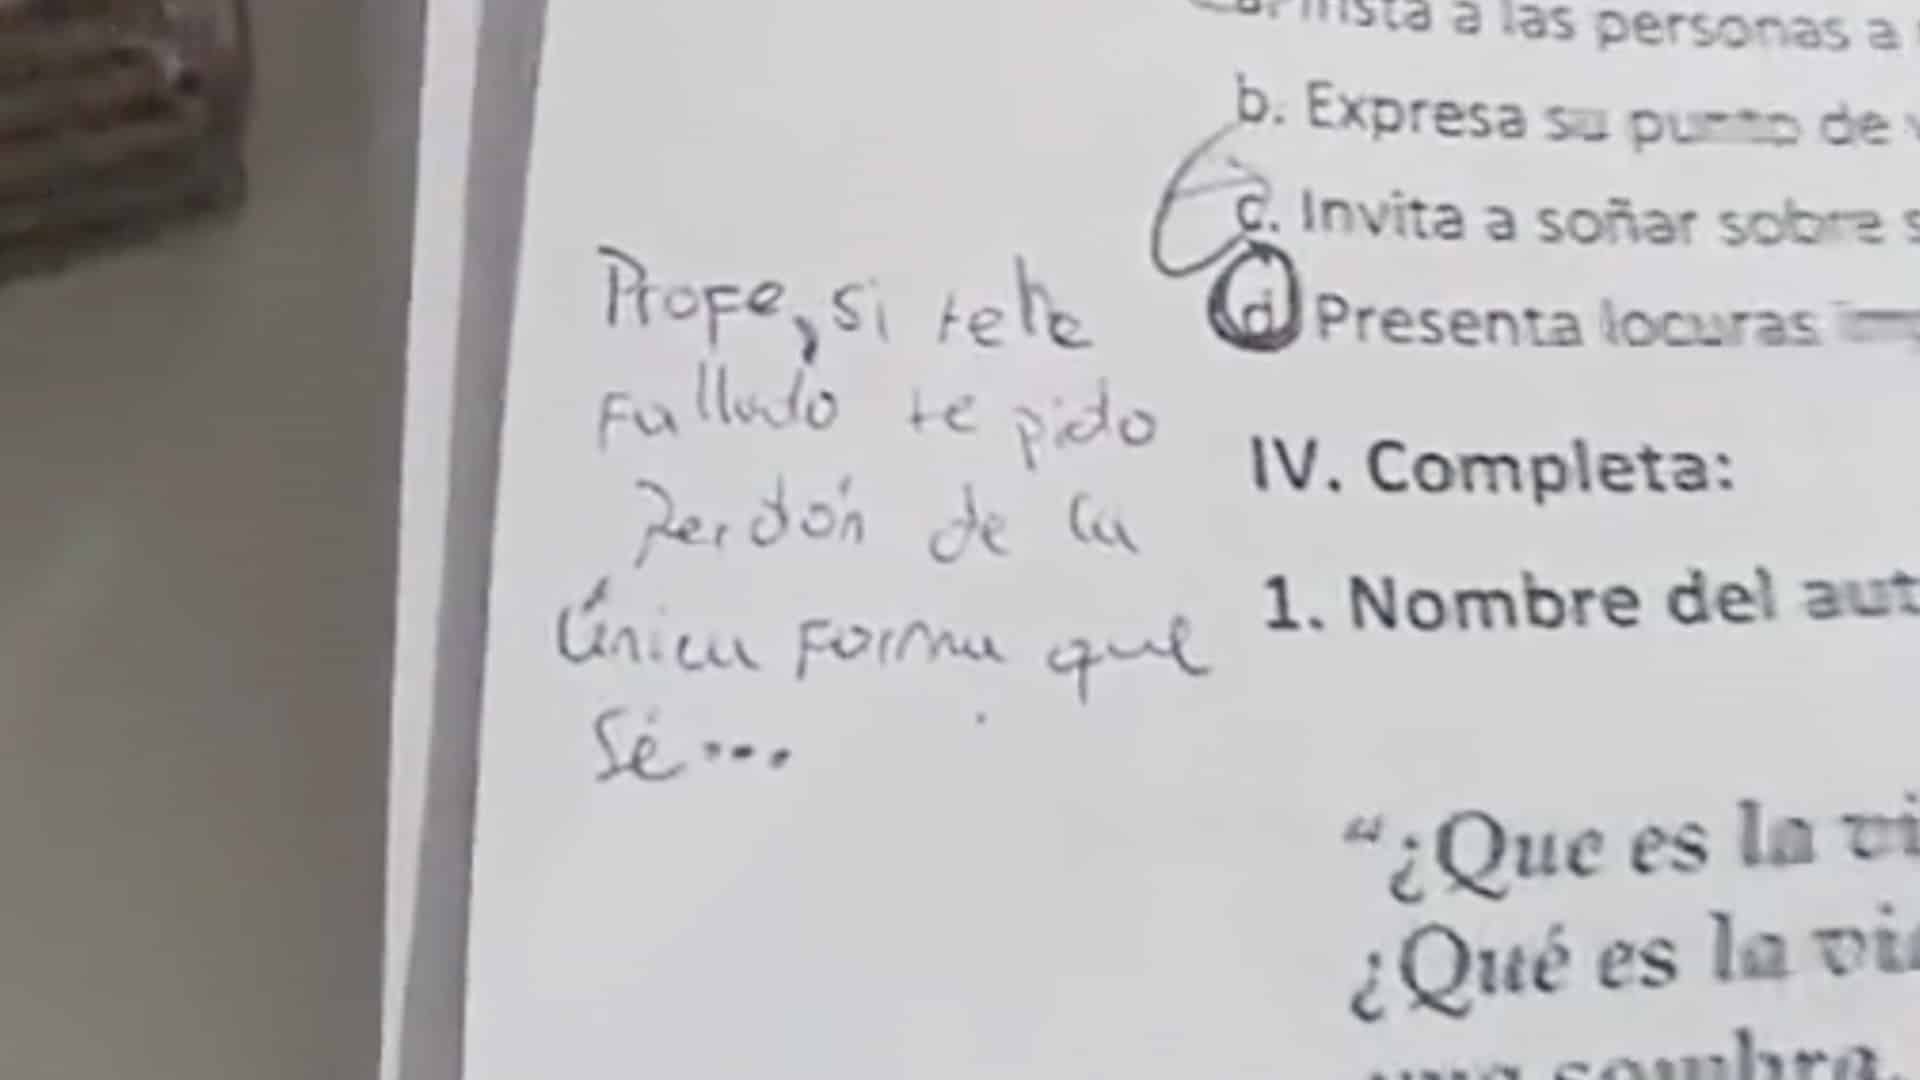 a. Insta a las personas a
b. Expresa su punto de
c. Invita a soñar sobre
d Presenta locuras
Profe, si te he
fallado te pido
Perdón de la
Única forma que
sé...
IV. Completa:
1. Nombre del aut
"¿Que es la vi
¿Qué es la vi
una sombra,